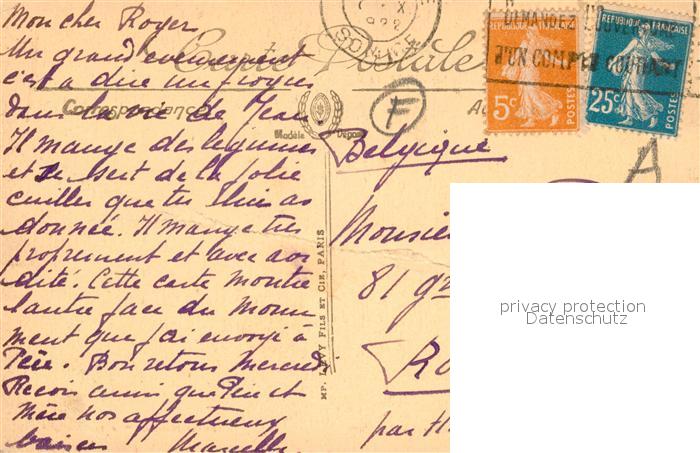 Mon cher Roger
Un grand évènement
c'est à dire un progrès
dans la vie de Jean.
Il mange des légumes
et se sert de la jolie
cuiller que tu lui as
donnée. Il mange très
proprement et avec avi
dité. Cette carte montre
l'autre face du monu
ment que j'ai envoyé à
Père. Bon retour Mercredi
Reçois ainsi que Père et
Mère nos affectueux
baisers Marcelle
Carte Postale
Correspondance
Modèle Déposé
MP. LÉVY FILS ET CIE, PARIS
F
SOMME
DEMANDEZ
D'UN COMPTE COURANT
RÉPUBLIQUE FRANÇAISE
5c
POSTES
RÉPUBLIQUE FRANÇAISE
25c
POSTES
A
Belgique
Monsie
81 
Ro
par H
privacy protection
Datenschutz